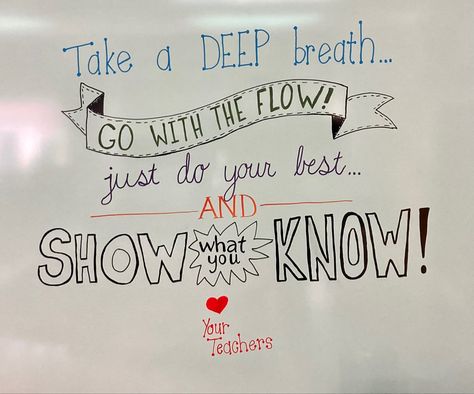 Take a DEEP breath...
GO WITH THE FLOW!
just do your best...
AND
SHOW what you KNOW!
Your
Teachers